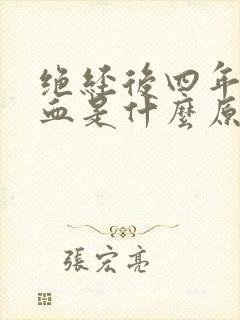 绝经後四年
血是什麼原
張宏亮